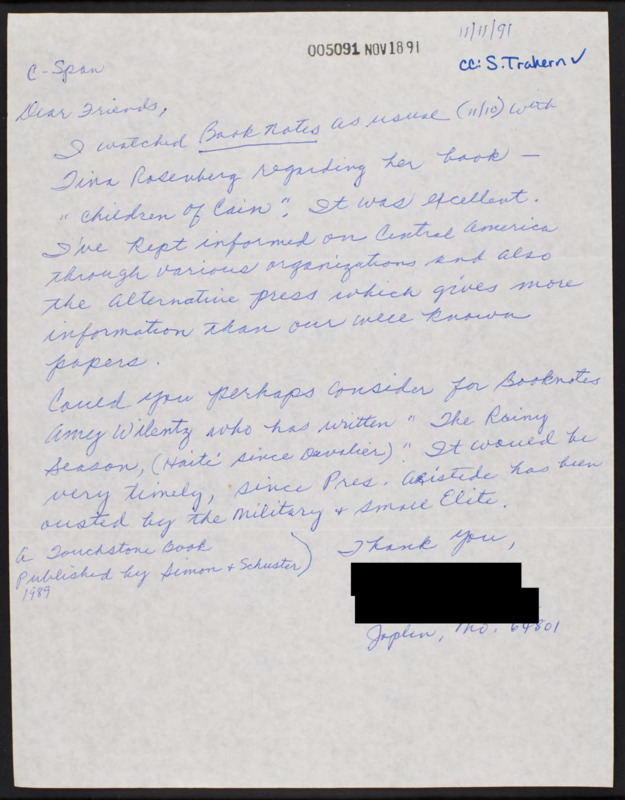 11/11/91
005091 NOV 18 91
cc: S. Trahern ✓
C-Span
Dear Friends,
I watched Book Notes as usual (11/10) with
Tina Rosenberg regarding her book —
"Children of Cain". It was excellent.
I've kept informed on Central America
through various organizations and also
the alternative press which gives more
information than our well known
papers.
Could you perhaps consider for Booknotes
Amy Wilentz who has written "The Rainy
Season, (Haiti since Duvalier)" It would be
very timely, since Pres. Aristide has been
ousted by the Military & small Elite.
A Touchstone Book
Published by Simon & Schuster)
1989
Thank you,
Joplin, Mo. 64801